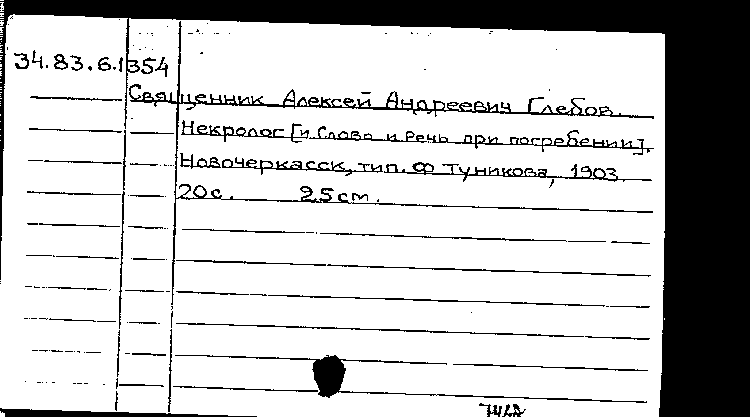 34.83.6.1354
Священник Алексей Андреевич Глебов.
Некролог [и Слово и Речь при погребении].
Новочеркасск, тип. Ф Туникова, 1903.
20с. 25 см.